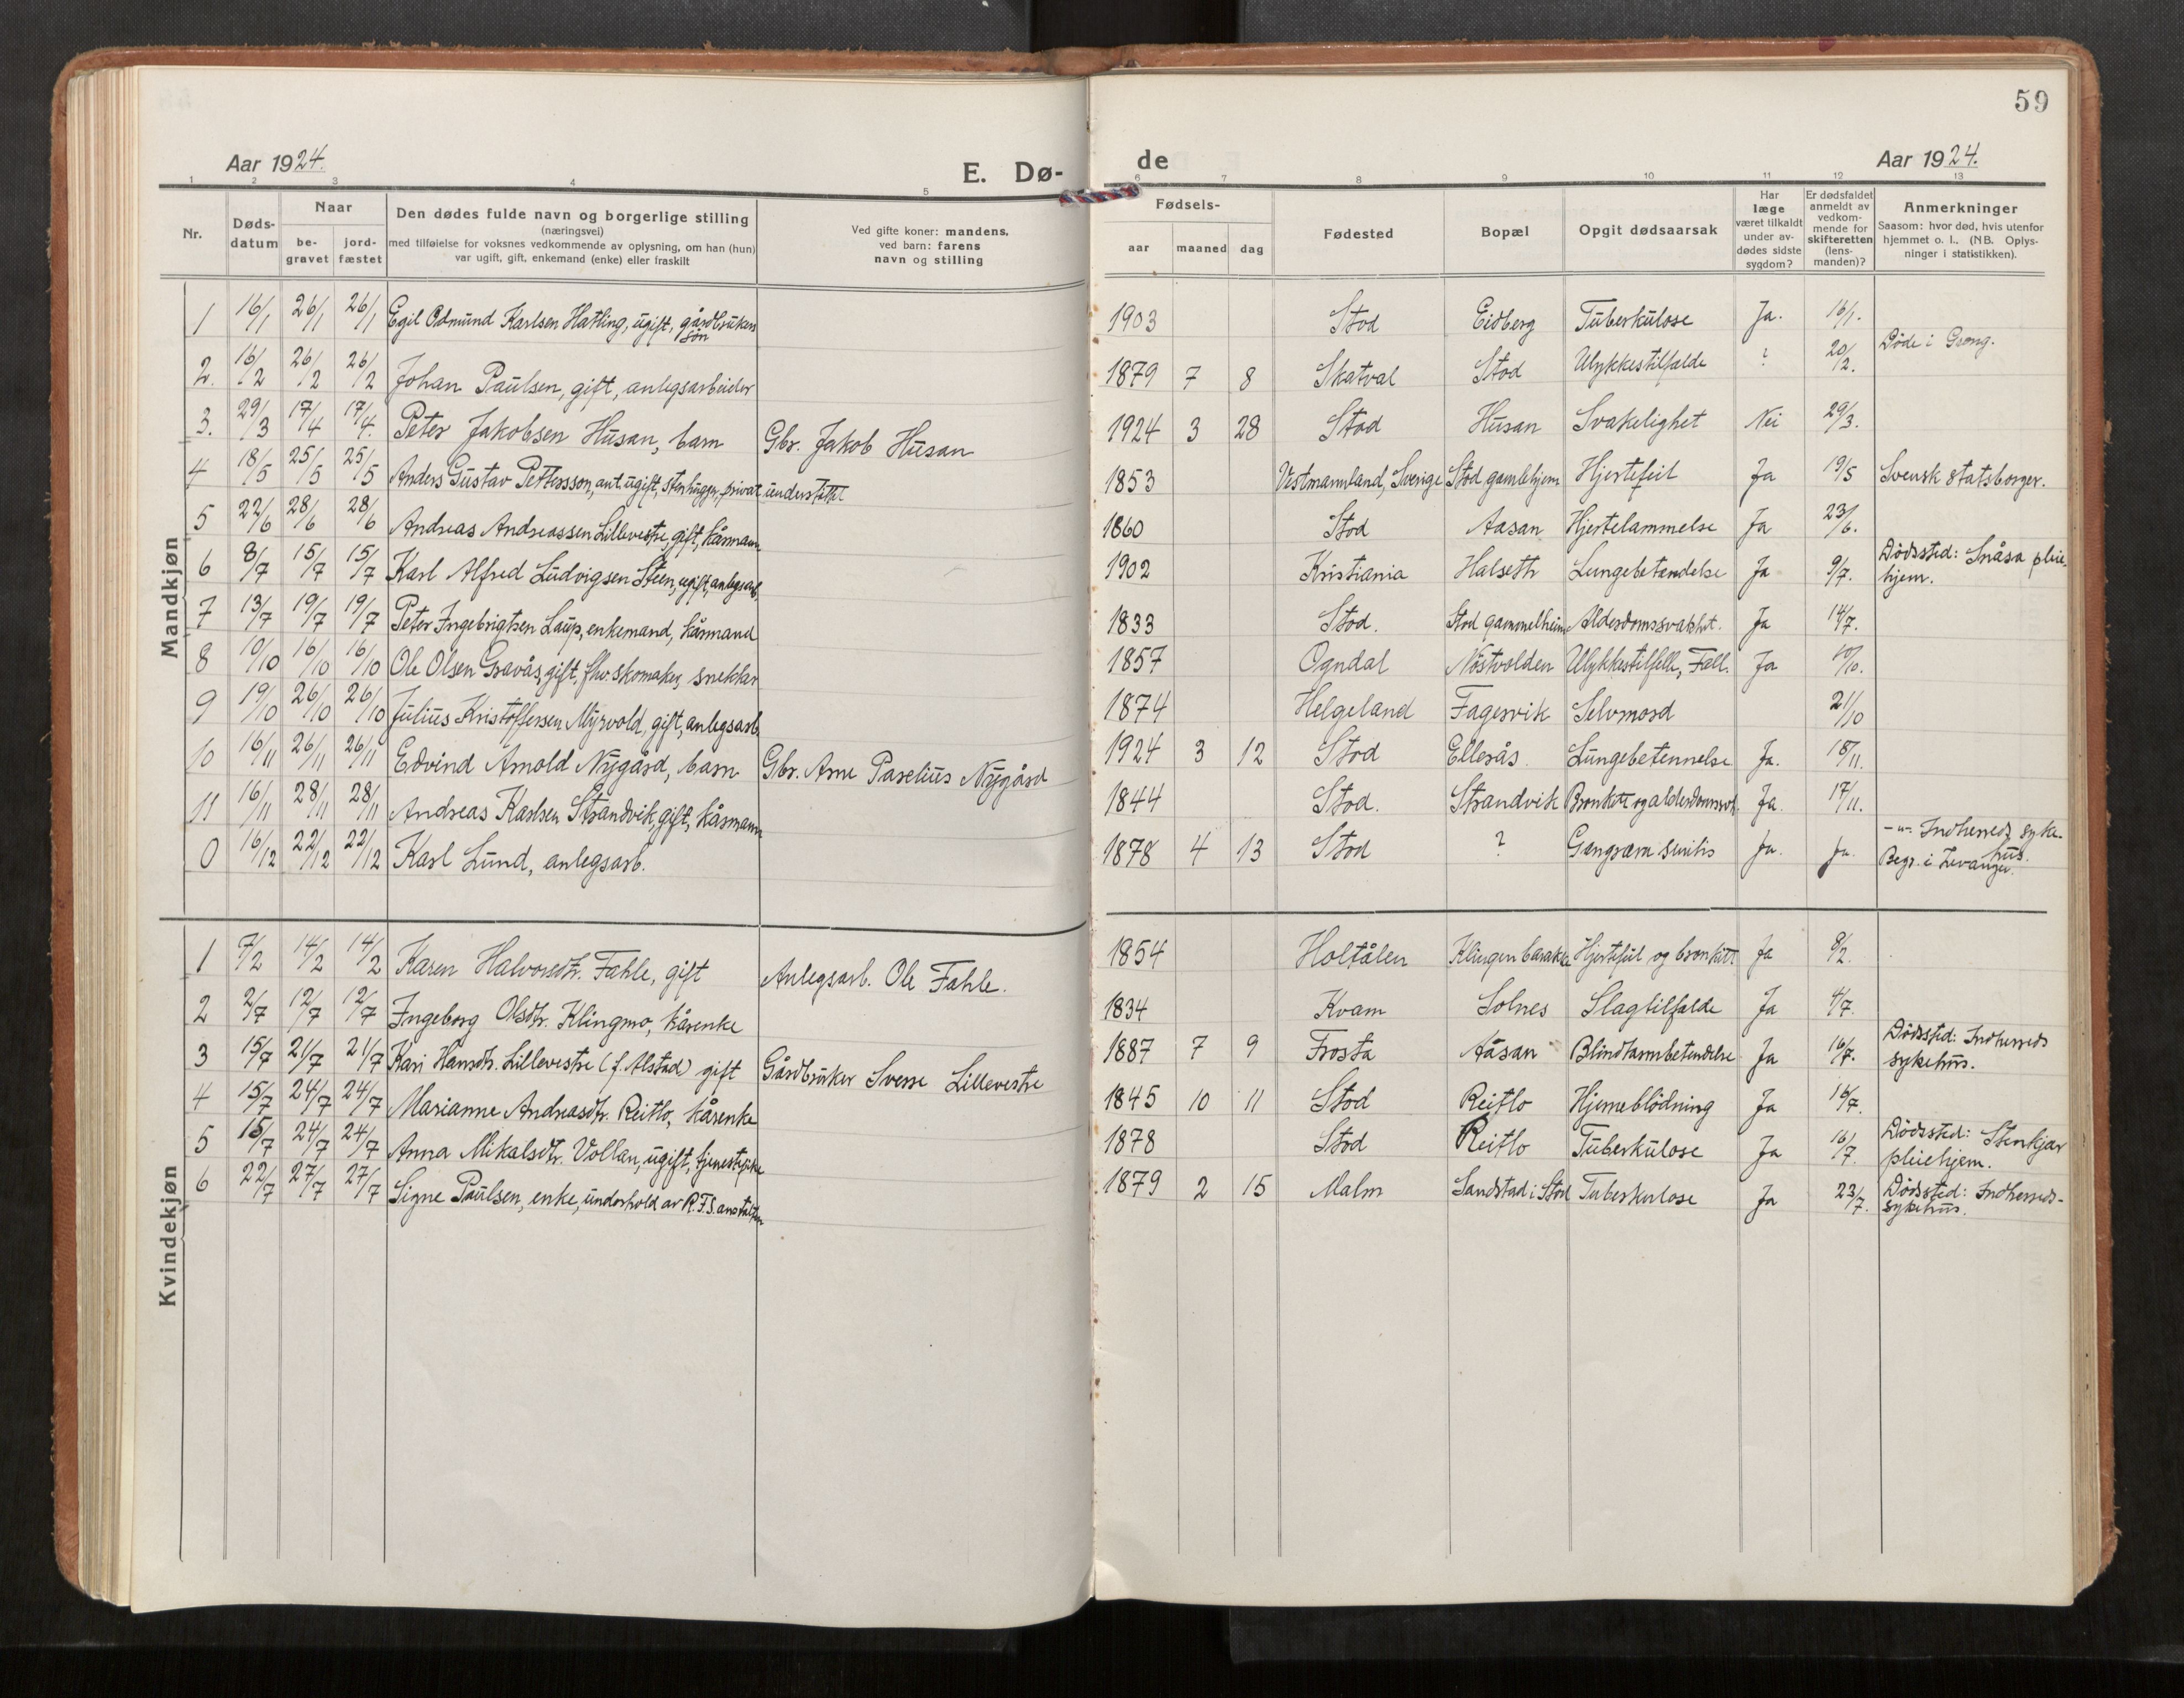 59
Aar 1924.
E. Dø-
de
Aar 1924.
1 2 3 4 5 6 7 8 9 10 11 12 13
Nr.
Døds-
datum
Naar
be-
gravet
jord-
fæstet
Den dødes fulde navn og borgerlige stilling
(næringsvei)
med tilføielse for voksnes vedkommende av oplysning, om han (hun)
var ugift, gift, enkemand (enke) eller fraskilt
Ved gifte koner: mandens,
ved barn: farens
navn og stilling
Fødsels-
aar maaned dag
Fødested
Bopæl
Opgit dødsaarsak
Har
læge
været tilkaldt
under av-
dødes sidste
sygdom?
Er dødsfaldet
anmeldt av
vedkom-
mende for
skifteretten
(lens-
manden)?
Anmerkninger
Saasom: hvor død, hvis utenfor
hjemmet o. l., (NB. Oplys-
ninger i statistikken).
Mandkjøn
1 16/1 26/1 26/1 Egil Odmund Karlsen Hatling, ugift, gårdbrukers
sön
1903 Stod Eidberg Tuberkulose Ja. 16/1.
2. 16/2 26/2 26/2 Johan Paulsen, gift, anlegsarbeider 1879 7 8 Skatval Stod Ulykkestilfælde ? 20/2. Döde i Grong.
3. 29/3 17/4 17/4. Peter Jakobsen Husan, barn Gbr. Jakob Husan 1924 3 28 Stod Husan Svakelighet Nei 29/3.
4 18/5 25/5 25/5 Anders Gustav Pettersson, ant. ugift, stenhugger, privat understöttet 1853 Vestmannland, Sverige Stod gamlehjem Hjertefeil Ja 19/5 Svensk statsborger.
5 22/6 28/6 28/6 Andreas Andreassen Lillevestre, gift, kårmann 1860 Stod Aasan Hjertelammelse Ja 23/6.
6 8/7 15/7 15/7 Karl Alfred Ludvigsen Steen, ugift, anlegsarb. 1902 Kristiania Halseth Lungebetændelse Ja 9/7. Dödssted: Snåsa pleie-
hjem.
7 13/7 19/7 19/7 Peter Ingebrigtsen Laup, enkemand, kårmand 1833 Stod. Stod gammelheim Alderdomssvakhet. Ja 14/7.
8 10/10 16/10 16/10 Ole Olsen Gravås, gift, fhv. skomaker, snekker 1857 Ogndal Nöstvolden Ulykkestilfelle, Fall. Ja 10/10.
9 19/10 26/10 26/10 Julius Kristoffersen Myrvold, gift, anlegsarb. 1874 Helgeland Fagervik Selvmord 21/10
10 16/11 26/11 26/11 Edvind Arnold Nygård, barn Gbr. Arne Paselius Nygård 1924 3 12 Stod Ellerås. Lungebetennelse Ja. 18/11.
11 16/11 28/11 28/11 Andreas Karlsen Strandvik, gift, kårmann 1844 Stod. Strandvik Bronkitt og alderdomssvk. Ja. 17/11.
0 16/12 22/12 22/12 Karl Lund, anlegsarb. 1878 4 13 Stod ? Gangræna senilis Ja. Ja. -"- Indherreds syke-
hus.
Begr. i Levanger.
Kvindekjøn
1 7/2 14/2 14/2 Karen Halvorsdtr. Fahle, gift Anlegsarb. Ole Fahle. 1854 Holtålen Klingen barakke Hjertefeil og bronkitt. Ja 8/2.
2 2/7 12/7 12/7 Ingeborg Olsdtr. Klingmo, kårenke 1834 Kvam Solnes Slagtilfælde Ja 4/7.
3 15/7 21/7 21/7 Kari Hansdtr. Lillevestre (f. Alstad) gift Gårdbruker Sverre Lillevestre 1887 7 9 Frosta Aåsan Blindtarmbetendelse Ja 16/7. Dödssted: Indherreds
sykehus.
4 15/7 24/7 24/7 Marianne Andreasdtr. Reitlo, kårenke 1845 10 11 Stod Reitlo Hjerneblödning Ja 16/7.
5 15/7 24/7 24/7 Anna Mikalsdtr. Vollan, ugift, tjenestepike 1878 Stod Reitlo Tuberkulose Ja 16/7. Dödssted: Stenkjær
pleiehjem.
6 22/7 27/7 27/7 Signe Paulsen, enke, underhold av R.F.S. anstalten 1879 2 15 Malm Sandstad i Stod Tuberkulose Ja 23/7. Dödssted: Indherreds-
sykehus.